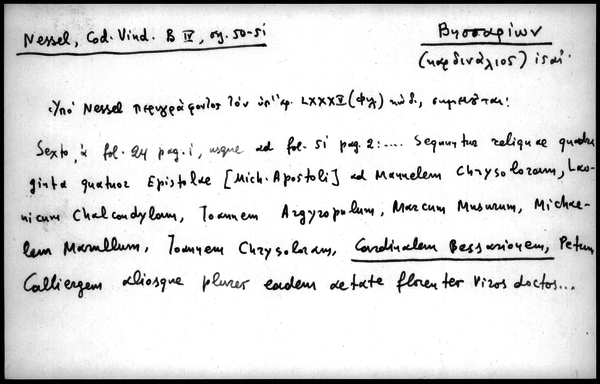 Nessel, Cod. Vind. B IV, σσ. 50-51
Βησσαρίων
(καρδινάλιος)
Ὑπὸ Nessel περιγράφοντος τὸν ὑπ' ἀρ. LXXXV (φιλ) κώδ., σημειοῦται:
Sexto, à fol. 24 pag. 1, usque ad fol. 51 pag. 2:.... Sequuntur reliquae quadra
ginta quatuor Epistolae [Mich. Apostoli] ad Manuelem Chrysoloram, Lao-
nicum Chalcondylam, Joannem Argyropulum, Marcum Musurum, Michae-
lem Marullum, Joannem Chrysoloram, Cardinalem Bessarionem, Petrum
Calliergem aliosque plures eadem aetate florenter viros doctos...